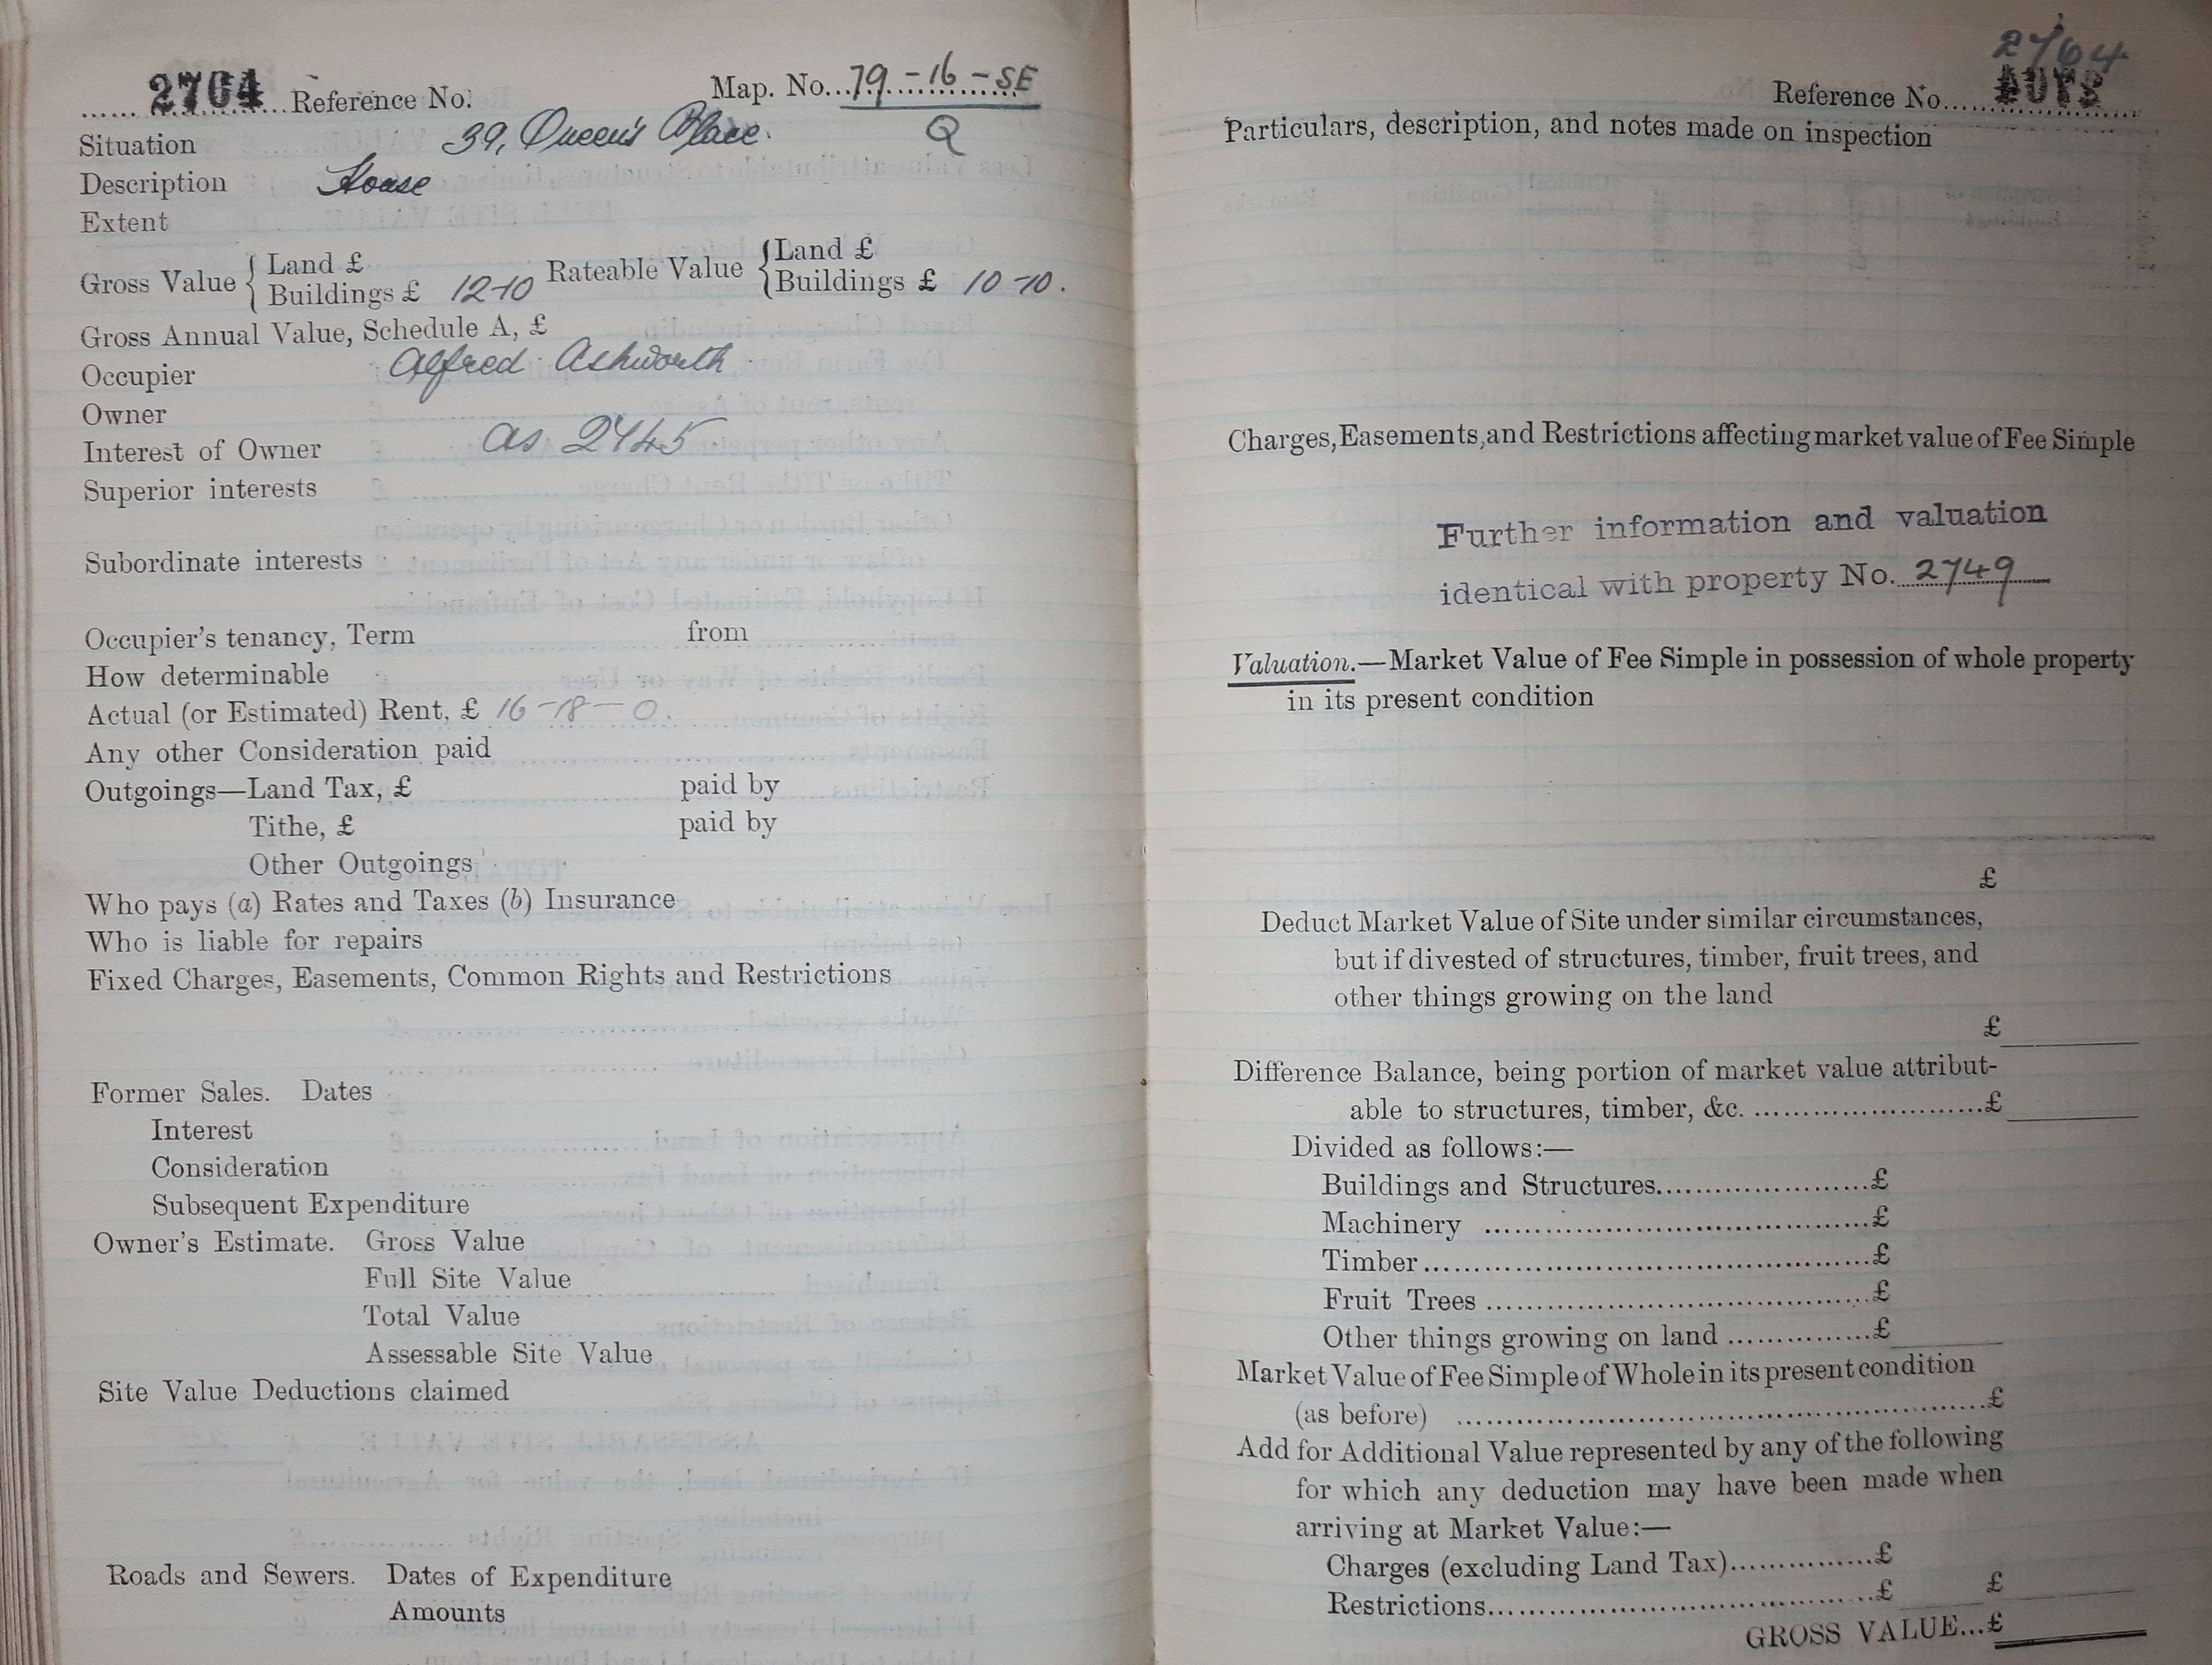 2764 Reference No. Map. No. 79-16-SE
Q
Situation 39, Queen's Place.
Description House
Extent
Gross Value { Land £
Buildings £ 12-10 Rateable Value { Land £
Buildings £ 10-10.
Gross Annual Value, Schedule A, £
Occupier Alfred Ashworth
Owner
Interest of Owner as 2745
Superior interests
Subordinate interests
Occupier's tenancy, Term from
How determinable
Actual (or Estimated) Rent, £ 16-18-0.
Any other Consideration paid
Outgoings—Land Tax, £ paid by
Tithe, £ paid by
Other Outgoings
Who pays (a) Rates and Taxes (b) Insurance
Who is liable for repairs
Fixed Charges, Easements, Common Rights and Restrictions
Former Sales. Dates
Interest
Consideration
Subsequent Expenditure
Owner's Estimate. Gross Value
Full Site Value
Total Value
Assessable Site Value
Site Value Deductions claimed
Roads and Sewers. Dates of Expenditure
Amounts
2764
Reference No.
Particulars, description, and notes made on inspection
Charges, Easements, and Restrictions affecting market value of Fee Simple
Further information and valuation
identical with property No. 2749
Valuation.—Market Value of Fee Simple in possession of whole property
in its present condition
£
Deduct Market Value of Site under similar circumstances,
but if divested of structures, timber, fruit trees, and
other things growing on the land
£
Difference Balance, being portion of market value attribut-
able to structures, timber, &c. £
Divided as follows:—
Buildings and Structures £
Machinery £
Timber £
Fruit Trees £
Other things growing on land £
Market Value of Fee Simple of Whole in its present condition
(as before) £
Add for Additional Value represented by any of the following
for which any deduction may have been made when
arriving at Market Value:—
Charges (excluding Land Tax) £
Restrictions £ £
GROSS VALUE...£